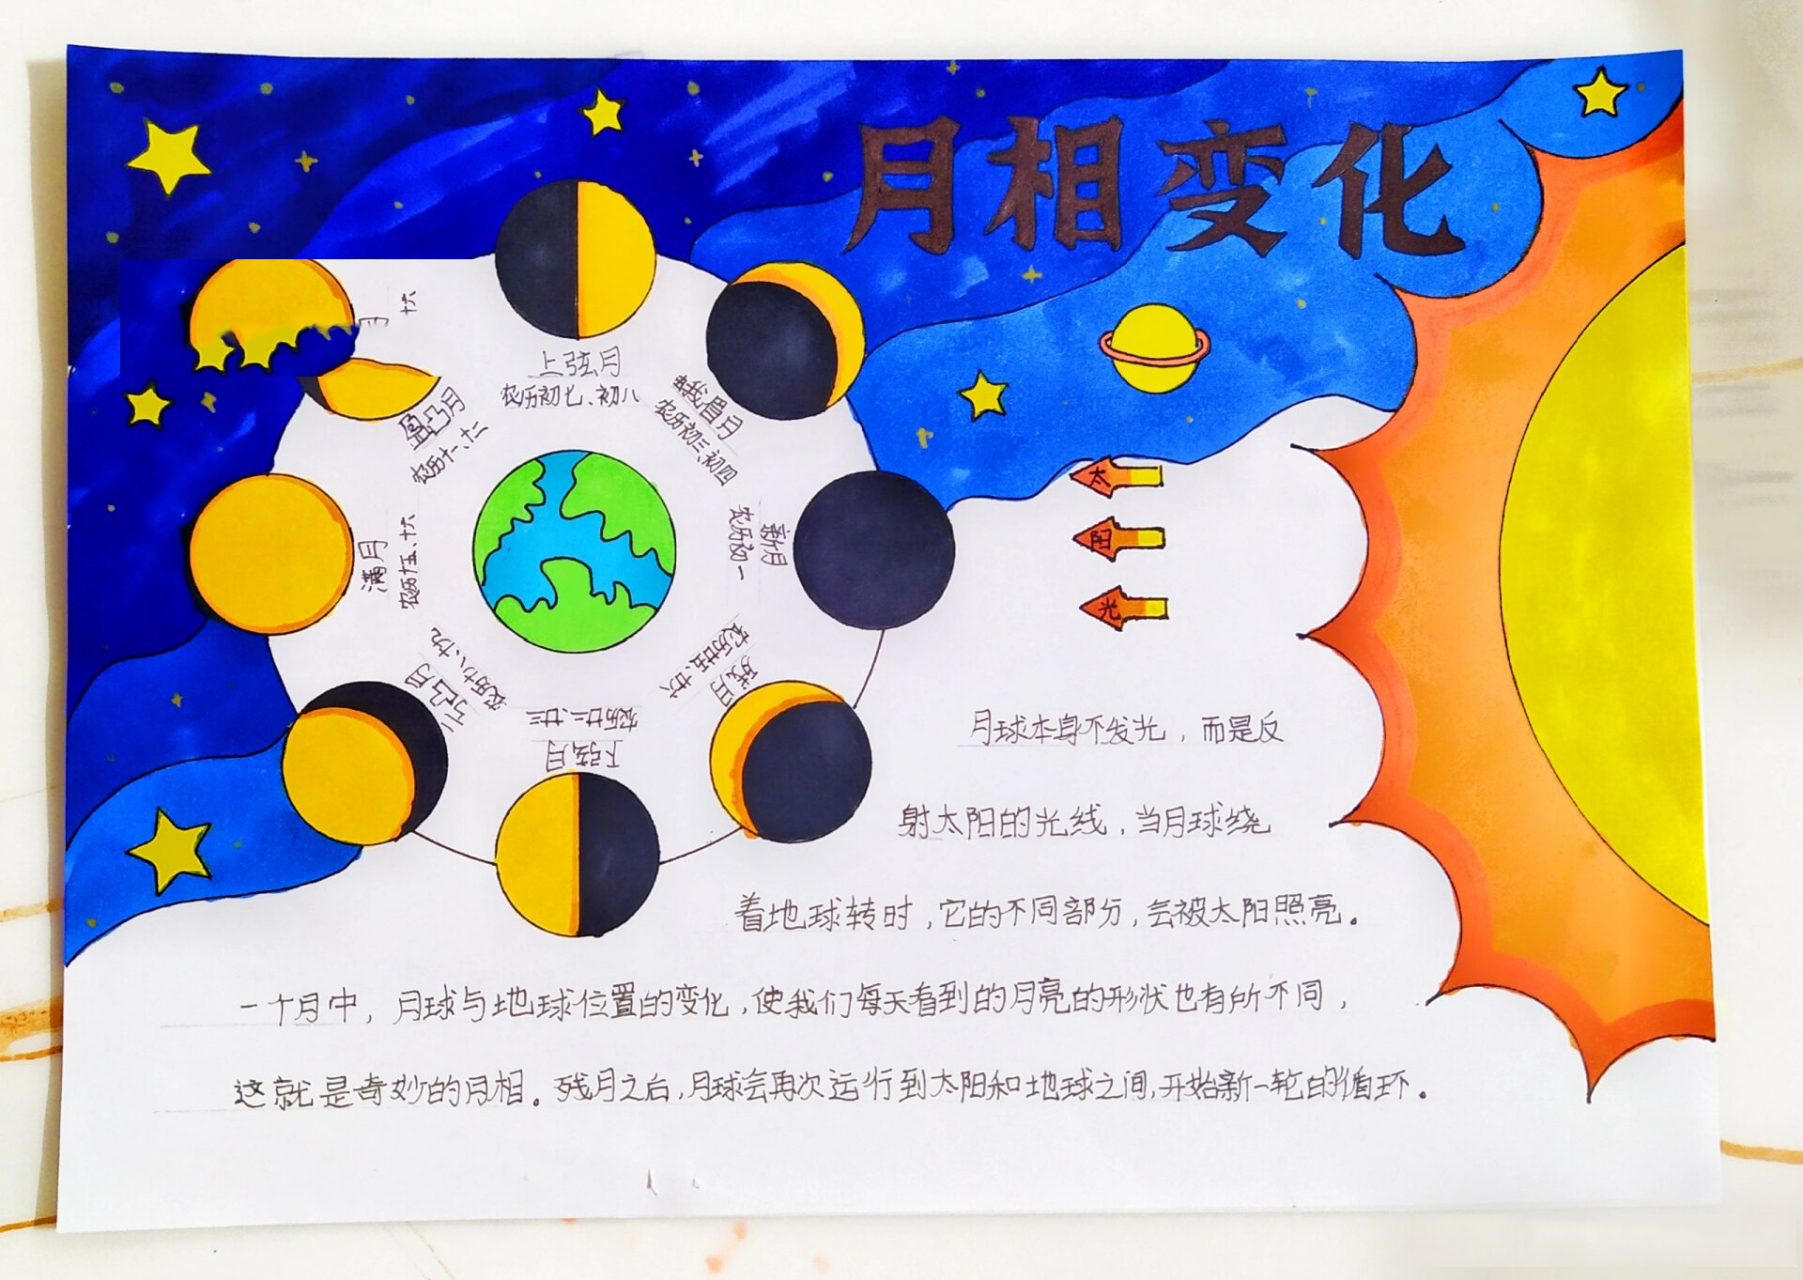 月相变化
月
十六
上弦月
农历初七、初八
峨眉月
农历初三、初四
盈凸月
农历十一、十二
新月
农历初一
满月
农历十五、十六
亏凸月
农历十八、十九
残月
农历廿五、廿六
下弦月
农历廿二、廿三
太
阳
光
月球本身不发光，而是反
射太阳的光线，当月球绕
着地球转时，它的不同部分，会被太阳照亮。
一个月中，月球与地球位置的变化，使我们每天看到的月亮的形状也有所不同，
这就是奇妙的月相。残月之后，月球会再次运行到太阳和地球之间，开始新一轮的循环。